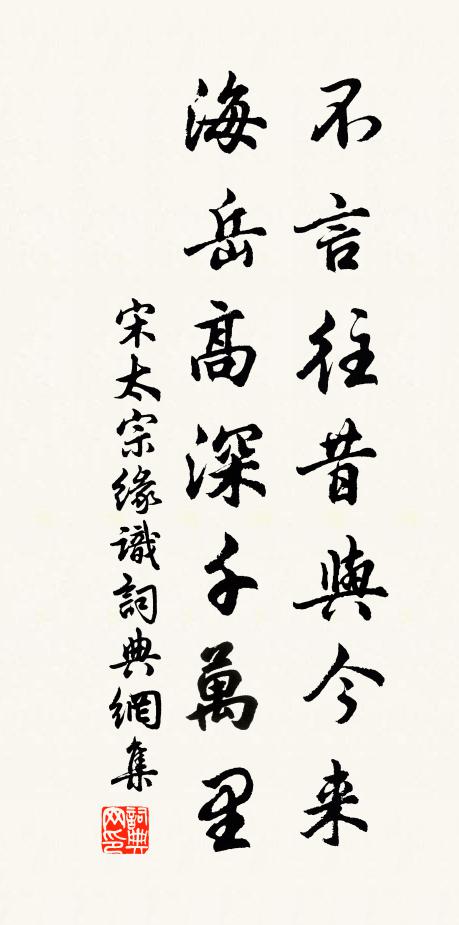 不言往昔與今来
海岳高深千萬里
宋太宗緣識詞典網集
詞典网印